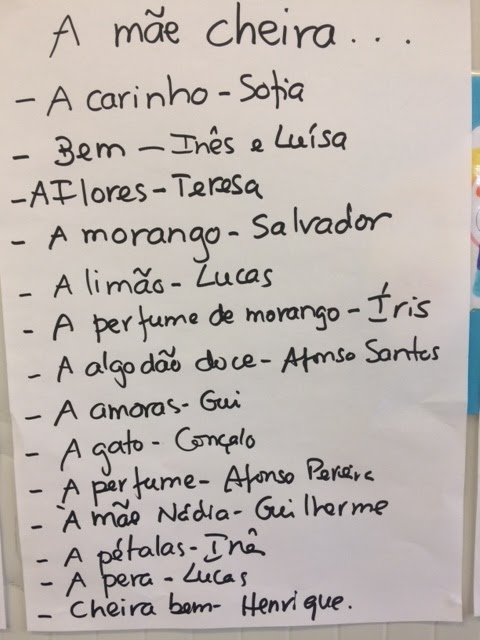 A mãe cheira...
- A carinho - Sofia
- Bem - Inês e Luísa
- A Flores - Teresa
- A morango - Salvador
- A limão - Lucas
- A perfume de morango - Íris
- A algodão doce - Afonso Santos
- A amoras - Gui
- A gato - Gonçalo
- A perfume - Afonso Pereira
- À mãe Nádia - Guilherme
- A pétalas - Inê
- A pera - Lucas
- Cheira bem - Henrique.